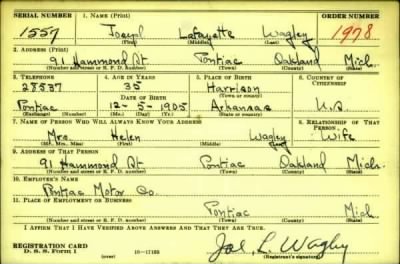 SERIAL NUMBER 1. NAME (Print) ORDER NUMBER
1557 Joseph Lafayette Wagley 1978
(First) (Middle) (Last)
2. ADDRESS (Print)
91 Hammond St Pontiac Oakland Mich.
(Number and street or R. F. D. number) (Town) (County) (State)
3. TELEPHONE 4. AGE IN YEARS 5. PLACE OF BIRTH 6. COUNTRY OF CITIZENSHIP
28537 35 Harrison
DATE OF BIRTH (Town or county)
Pontiac 12-5-1905 Arkansas U.S
(Exchange) (Number) (Mo.) (Day) (Yr.) (State or country)
7. NAME OF PERSON WHO WILL ALWAYS KNOW YOUR ADDRESS 8. RELATIONSHIP OF THAT PERSON
Mrs. Helen Wagley Wife
(Mr., Mrs., Miss) (First) (Middle) (Last)
9. ADDRESS OF THAT PERSON
91 Hammond St Pontiac Oakland Mich.
(Number and street or R. F. D. number) (Town) (County) (State)
10. EMPLOYER'S NAME
Pontiac Motor Co.
11. PLACE OF EMPLOYMENT OR BUSINESS
Pontiac Mich
(Number and street or R. F. D. number) (Town) (County) (State)
I AFFIRM THAT I HAVE VERIFIED ABOVE ANSWERS AND THAT THEY ARE TRUE.
REGISTRATION CARD
D. S. S. Form 1 (over) 16—17105 Joe L. Wagley
(Registrant's signature)